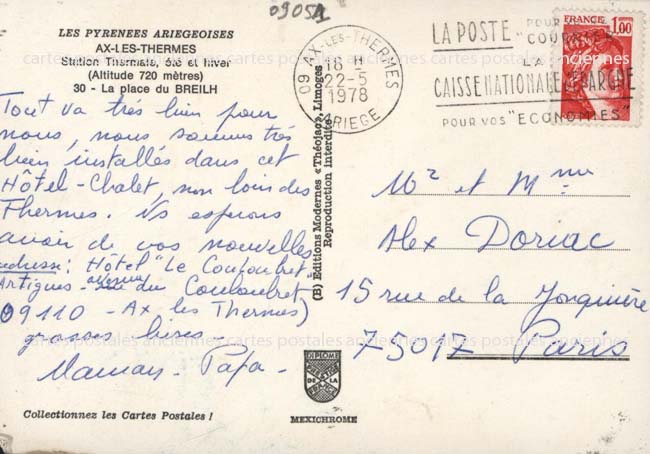 09051
LES PYRENEES ARIEGEOISES
AX-LES-THERMES
Station Thermale, été et hiver
(Altitude 720 mètres)
30 - La place du BREILH
Tout va très bien pour
nous, nous sommes très
bien installés dans cet
Hôtel-Chalet, non loin des
Thermes. Ns esperons
avoir de vos nouvelles
adresse: Hôtel "Le Couloubret"
Artigues avenue du Couloubret
09110 - Ax les Thermes)
grosses bises
Maman - Papa -
Collectionnez les Cartes Postales !
(B) Editions Modernes «Théojac», Limoges
Reproduction Interdite
DIPLOME
DE LA
MEXICHROME
09 AX-LES-THERMES
18 H
22-5
1978
ARIEGE
LA POSTE POUR "COURRIER"
LA
CAISSE NATIONALE D'EPARGNE
POUR VOS "ECONOMIES"
FRANCE
1,00
Mr et Mme
Alex Doriac
15 rue de la Jonquière
75017 Paris
cartes postales anciennes cartes postales anciennes cartes postales